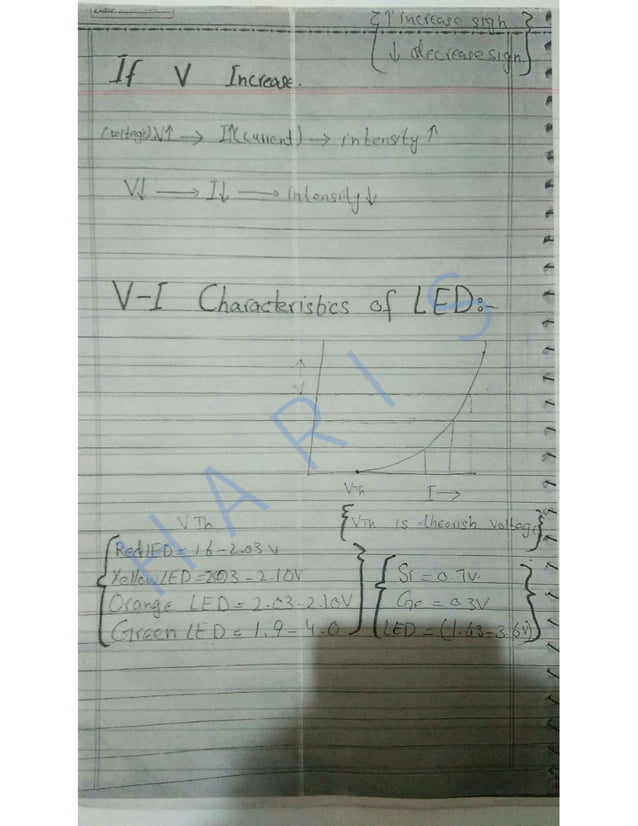 {↑ increase sigh}
{↓ decrease sign.}
If V Increase.
(voltage)V↑ → I↑(current) → intensity↑
V↓ → I↓ → intensity↓
V-I Characteristics of LED:-
V →
VTh I→
VTh
{VTh is thearish voltage}
Red LED = 1.6-2.03 V
Yellow LED = 2.03-2.10V
Orange LED = 2.03-2.10V
Green LED = 1.9-4.0
Si = 0.7V.
Ge = 0.3V
LED = (1.63-3.6V)
HARIS